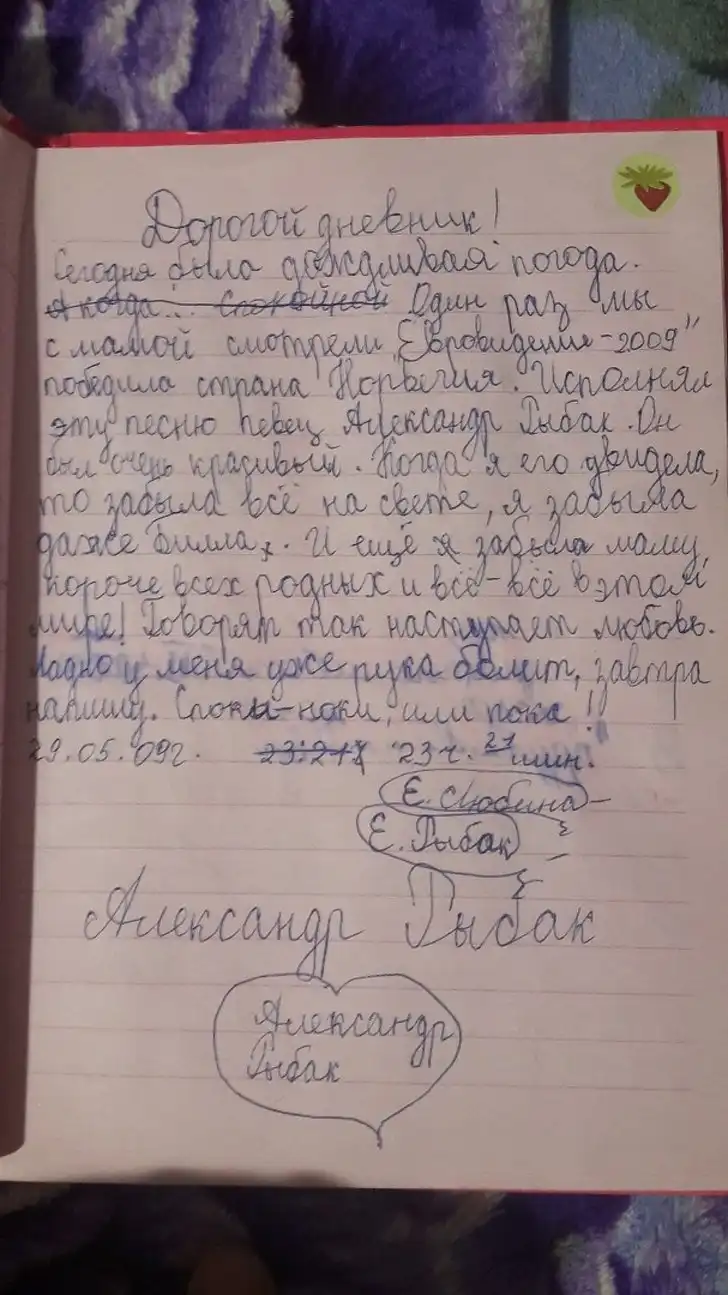 Дорогой дневник!
Сегодня была дождливая погода.
А когда... Спокойной Один раз мы
с мамой смотрели „Евровидение-2009"
победила страна Норвегия. Исполнял
эту песню певец Александр Рыбак. Он
был очень красивый. Когда я его увидела,
то забыла всё на свете, я забыла
даже Билла. И ещё я забыла маму,
короче всех родных и всё-всё в этом
мире! Говорят так наступает любовь.
Ладно у меня уже рука болит, завтра
напишу. Споки-ноки, или пока!
29.05.09г. 23:21 23ч. 21 мин.
Е. Любина
Е. Рыбак
Александр Рыбак
Александр
Рыбак